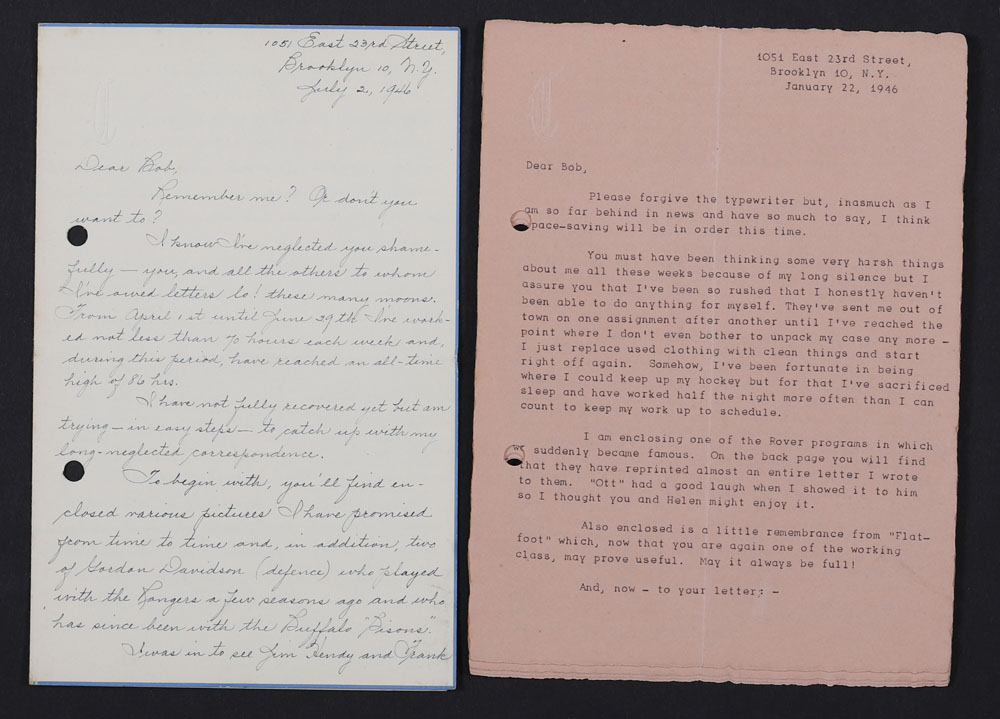 1051 East 23rd Street,
Brooklyn 10, N.Y.
July 2, 1946
Dear Bob,
Remember me? Or don't you
want to?
I know I've neglected you shame-
fully — you, and all the others to whom
I've owed letters lo! these many moons.
From April 1st until June 29th I've work-
ed not less than 70 hours each week and,
during this period, have reached an all-time
high of 86 hrs.
I have not fully recovered yet but am
trying — in easy steps — to catch up with my
long-neglected correspondence.
To begin with, you'll find en-
closed various pictures I have promised
from time to time and, in addition, two
of Gordon Davidson (defence) who played
with the Rangers a few seasons ago and who
has since been with the Buffalo "Bisons".
I was in to see Jim Hendy and Frank
1051 East 23rd Street,
Brooklyn 10, N.Y.
January 22, 1946
Dear Bob,
Please forgive the typewriter but, inasmuch as I
am so far behind in news and have so much to say, I think
pace-saving will be in order this time.
You must have been thinking some very harsh things
about me all these weeks because of my long silence but I
assure you that I've been so rushed that I honestly haven't
been able to do anything for myself. They've sent me out of
town on one assignment after another until I've reached the
point where I don't even bother to unpack my case any more -
I just replace used clothing with clean things and start
right off again. Somehow, I've been fortunate in being
where I could keep up my hockey but for that I've sacrificed
sleep and have worked half the night more often than I can
count to keep my work up to schedule.
I am enclosing one of the Rover programs in which
suddenly became famous. On the back page you will find
that they have reprinted almost an entire letter I wrote
to them. "Ott" had a good laugh when I showed it to him
so I thought you and Helen might enjoy it.
Also enclosed is a little remembrance from "Flat-
foot" which, now that you are again one of the working
class, may prove useful. May it always be full!
And, now - to your letter: -